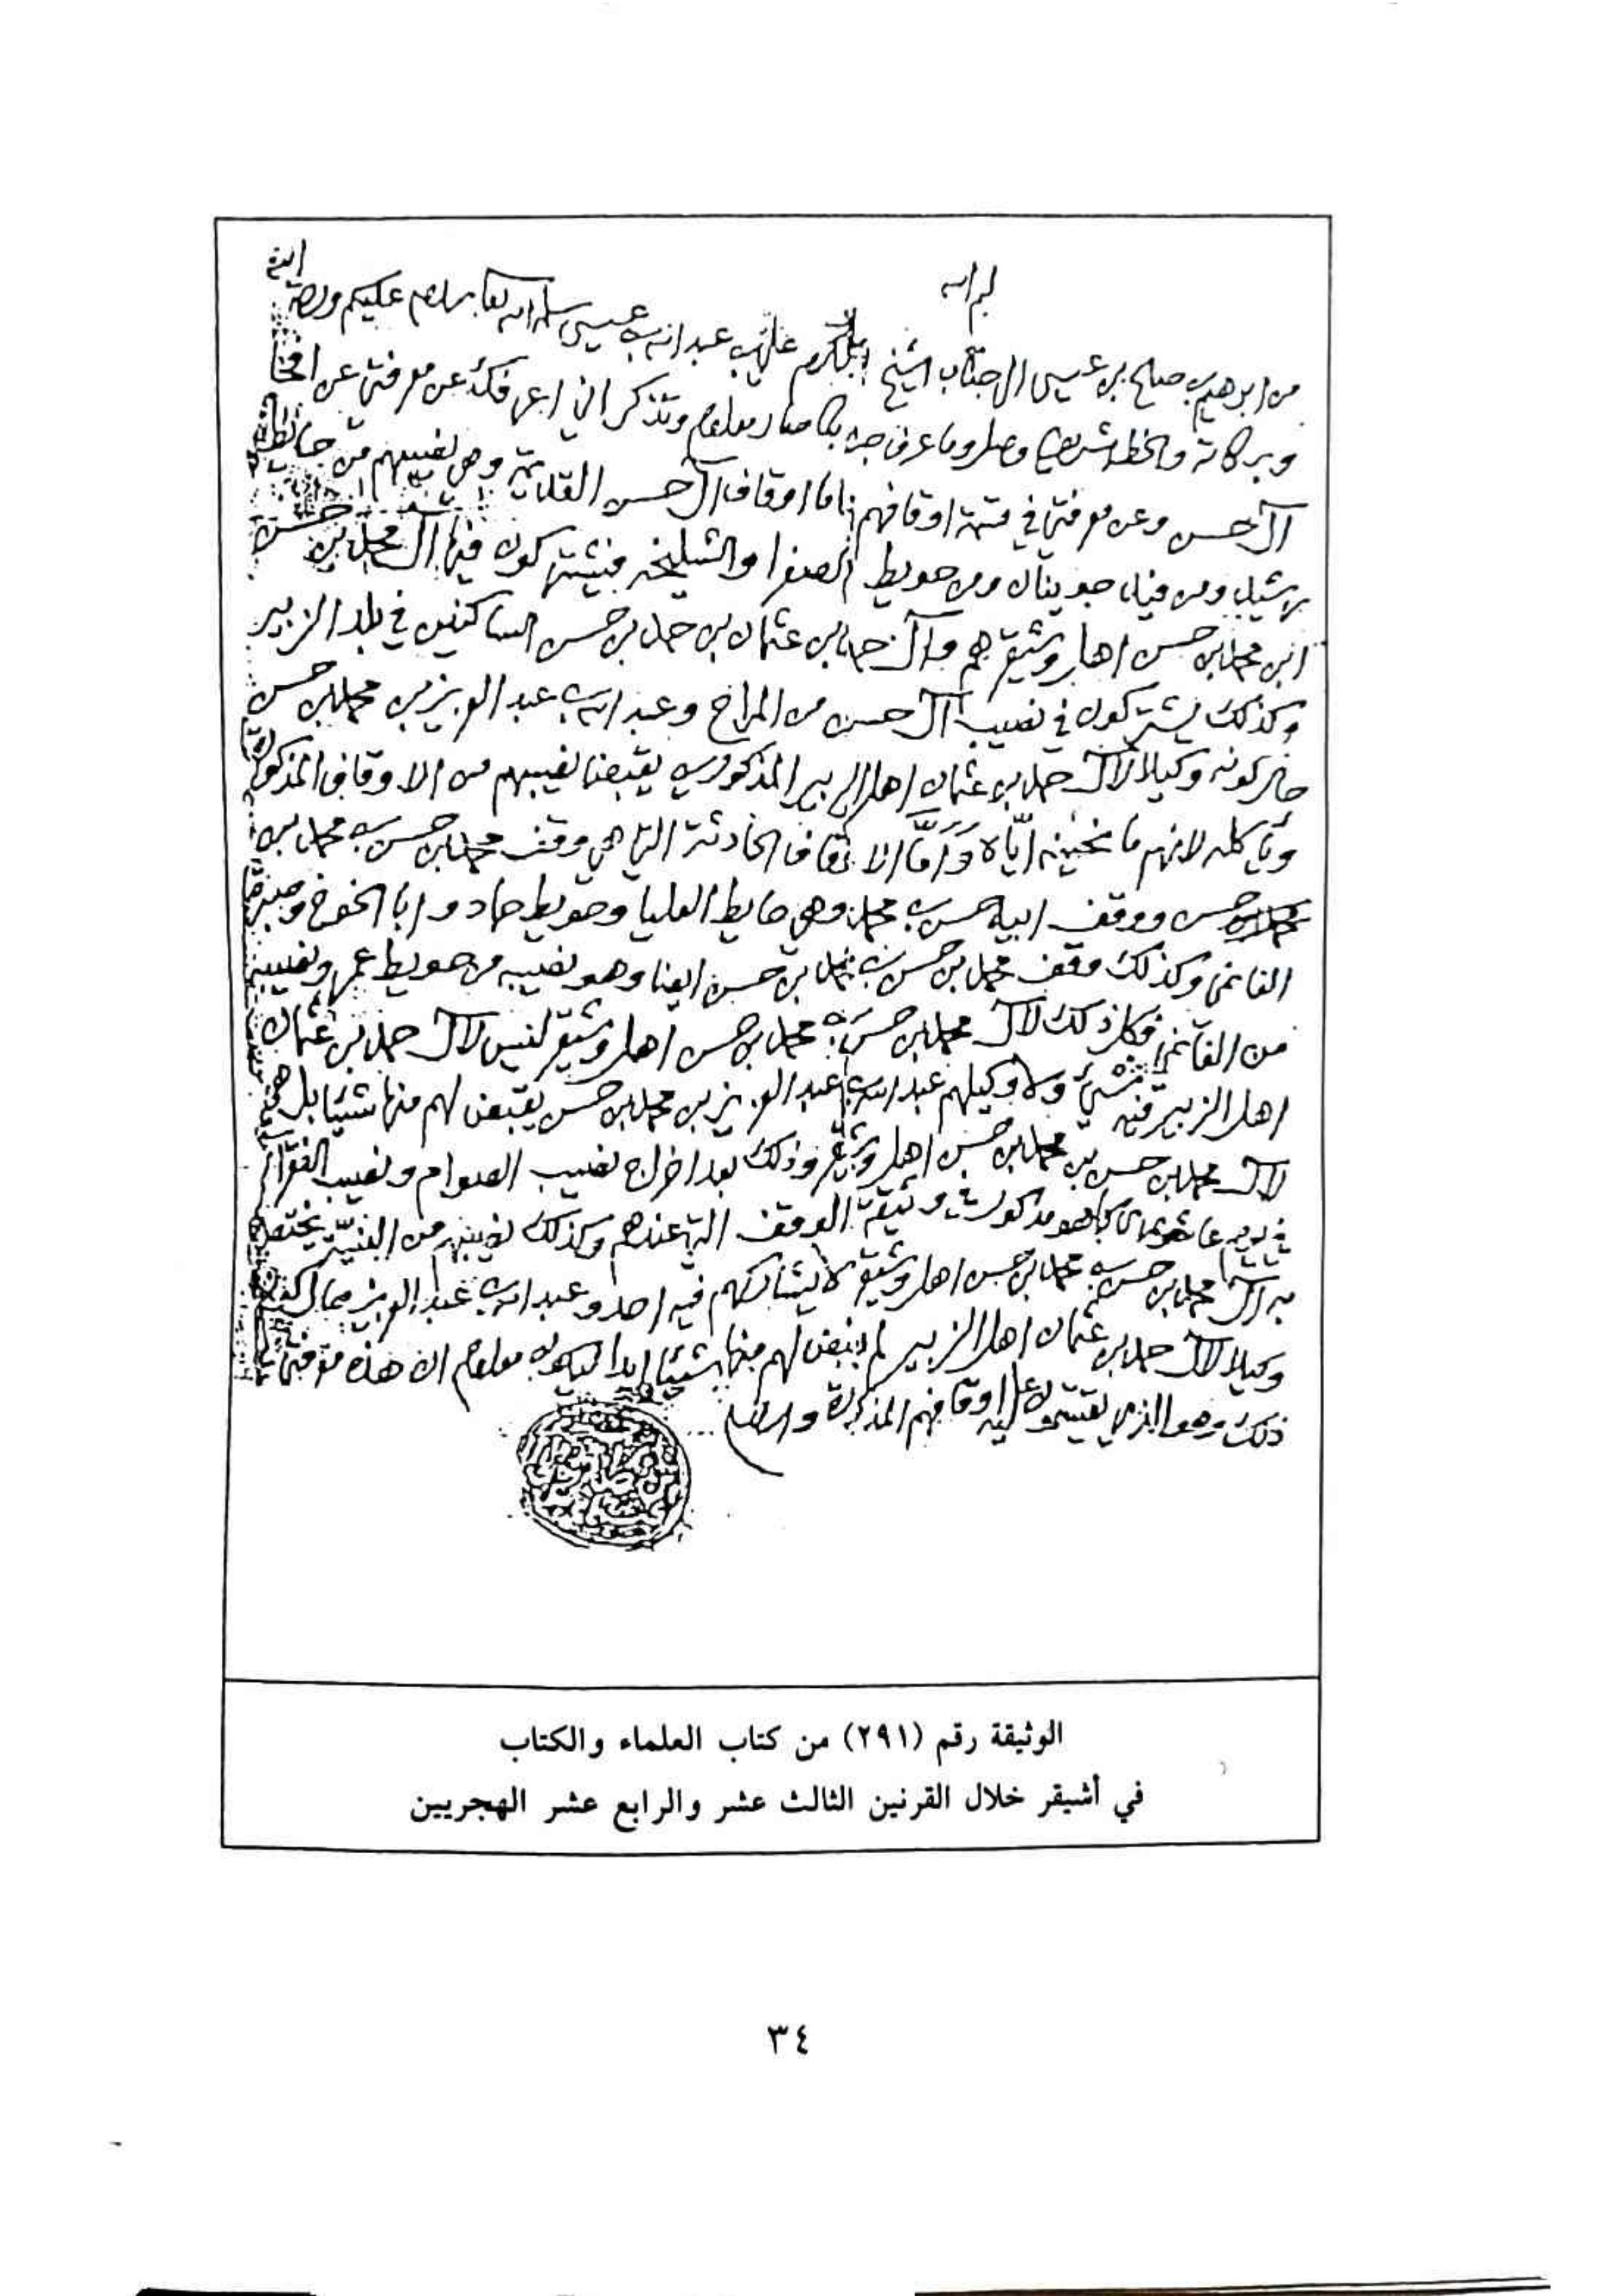 بسم الله
من ابرهيم بن صالح بن عيسى الى جناب الشيخ المكرم علي بن عبد الله بن عيسى سلمه الله تعالى سلام عليكم ورحمة الله
وبركاته والخط الشريف وصل وما عرف جنابك صار معلوم وتذكر اني اعرفك عن معرفتي عن افخاذ
آل حسن وعن معرفتي في قسمة اوقافهم فاما اوقاف آل حسن القديمة وهي نصيبهم من حايط
ومن حويط الصفرا والشليخيه فيشتركون فيها آل محمد بن حسن
ابن محمد بن حسن اهل وشيقر هم وآل حمد بن عثمان بن حمد بن حسن الساكنين في بلد الزبير
وكذلك يشتركون في نصيب آل حسن من المراح وعبد الله بن عبد العزيز بن محمد بن حسن
حال كونه وكيلا لآل حمد بن عثمان اهل الزبير المذكورين يقبض نصيبهم من الاوقاف المذكورة
وياكله لانهم اياه واما الاوقاف الحادثة التي هي وقف محمد بن حسن بن محمد بن
حسن ووقف ابيه حسن بن محمد وهي حايط العليا وحويط حماد و
وكذلك وقف محمد بن حسن بن محمد بن حسن ايضا وهو نصيبه من حويط عمر ونصيبه
من فكل ذلك لآل محمد بن حسن بن محمد بن حسن اهل وشيقر ليس لآل حمد بن عثمان
اهل الزبير فيه شيئ ولا وكيلهم عبد الله بن عبد العزيز بن محمد بن حسن يقبض لهم منها شيئا بل هي
لآل محمد بن حسن بن محمد بن حسن اهل وشيقر وذلك بعد اخراج نصيب الصوام ونصيب الفقراء
في يوم عاشوراء كما هو مذكور في وثيقة الوقف التي عندهم وكذلك نصيبهم من يختص
به آل محمد بن حسن بن محمد بن حسن اهل وشيقر لا يشاركهم فيه احد وعبد الله بن عبد العزيز حال كونه
وكيلا لآل حمد بن عثمان اهل الزبير لم يقبض لهم منها شيئا ابدا ليكون معلوم ان هذه معرفتي
ذلك وهو الذي يقتسمون عليه اوقافهم المذكورة والسلام
الوثيقة رقم (٢٩١) من كتاب العلماء والكتاب
في أشيقر خلال القرنين الثالث عشر والرابع عشر الهجريين
٣٤